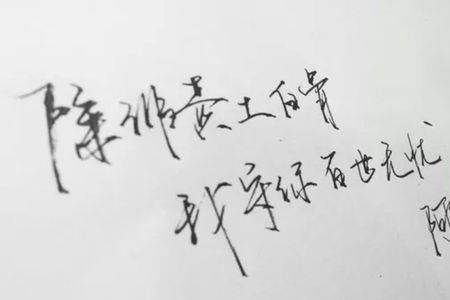 除非黄土白骨
我守你百世无忧